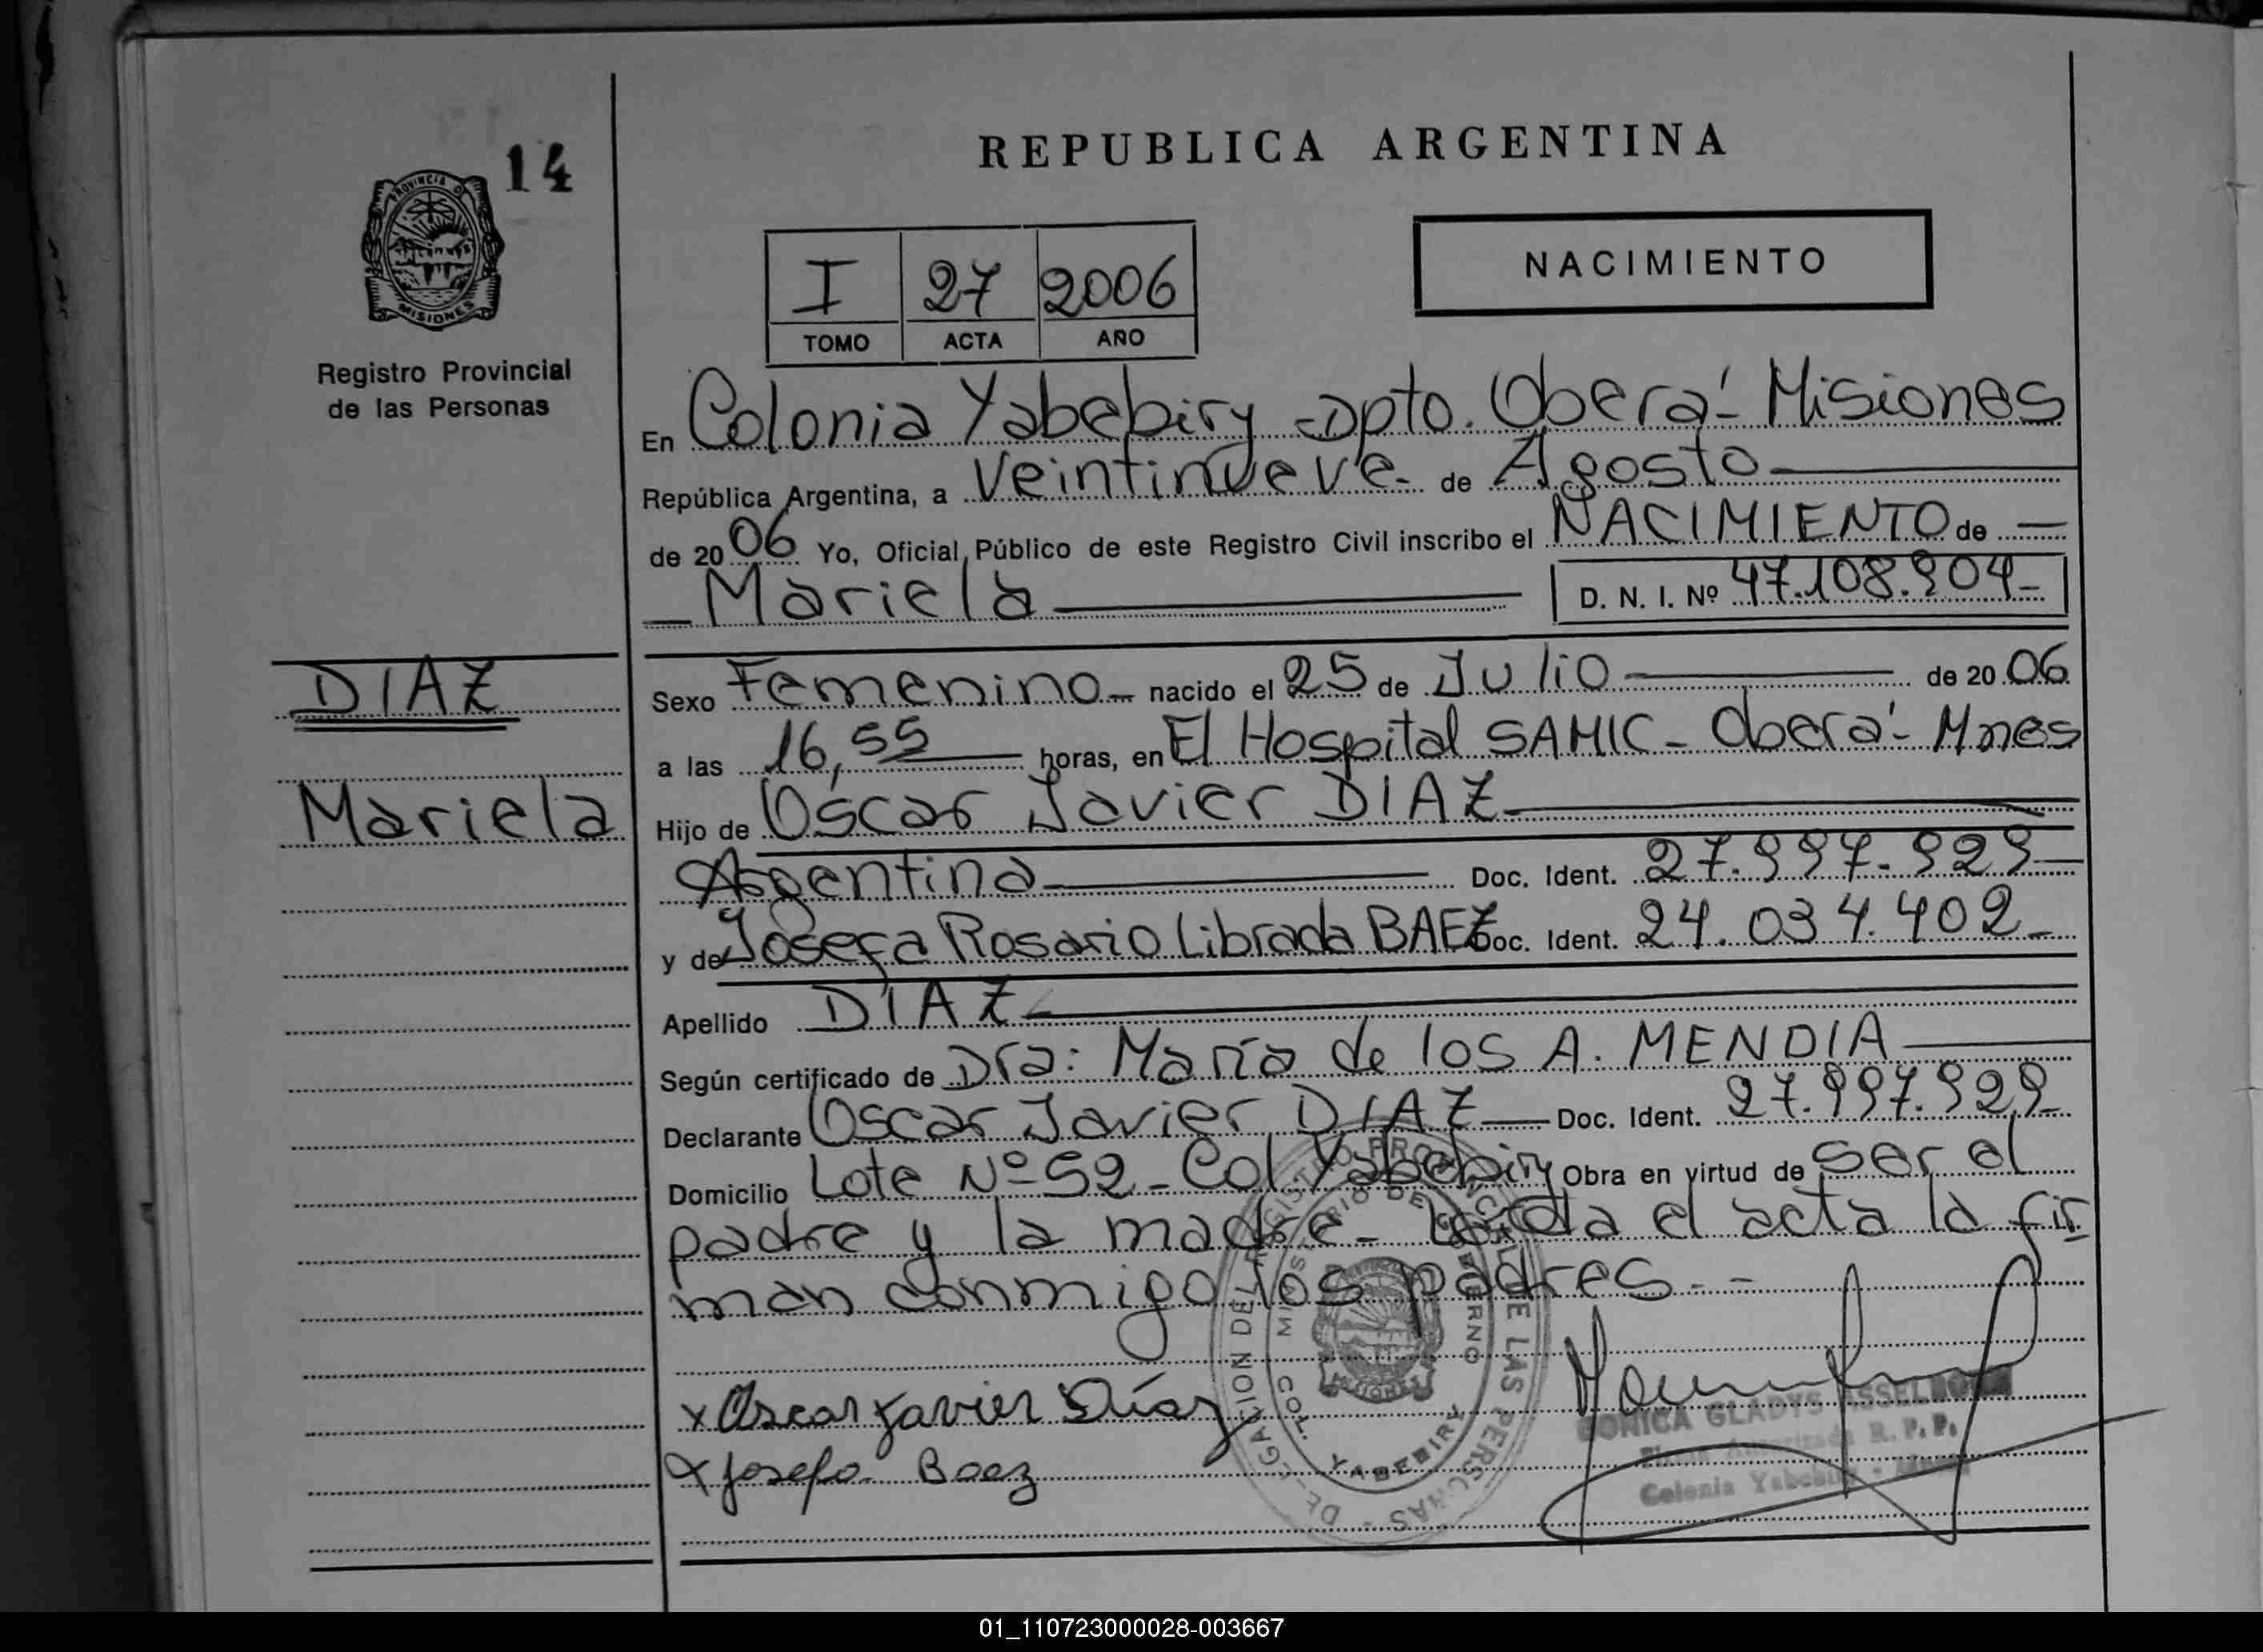 14
PROVINCIA DE
MISIONES
Registro Provincial
de las Personas
REPUBLICA ARGENTINA
I 27 2006
TOMO ACTA AÑO
NACIMIENTO
En Colonia Yabebiry - Dpto. Oberá - Misiones
República Argentina, a veintinueve - de Agosto
de 2006 Yo, Oficial Público de este Registro Civil inscribo el NACIMIENTO de
Mariela D. N. I. Nº 47.108.904-
DIAZ
Mariela
Sexo Femenino - nacido el 25 de Julio de 2006
a las 16,55 horas, en El Hospital SAMIC - Oberá - Mnes
Hijo de Oscar Javier DIAZ
Argentina Doc. Ident. 27.997.929
y de Josefa Rosario Librada BAEZ Doc. Ident. 24.034.402-
Apellido DIAZ
Según certificado de Dra: María de los A. MENDIA
Declarante Oscar Javier DIAZ Doc. Ident. 27.997.929
Domicilio Lote Nº 52 - Col Yabebiry Obra en virtud de ser el
padre y la madre - Leída el acta la fir
man conmigo los padres. -
x Oscar Javier Díaz
x Josefa Baez
DELEGACION DEL REGISTRO PROVINCIAL DE LAS PERSONAS
MINISTERIO DE GOBIERNO
COL. YABEBIRY
MISIONES
GLADYS
R. P. P.
Colonia Yabebiry -
01_110723000028-003667